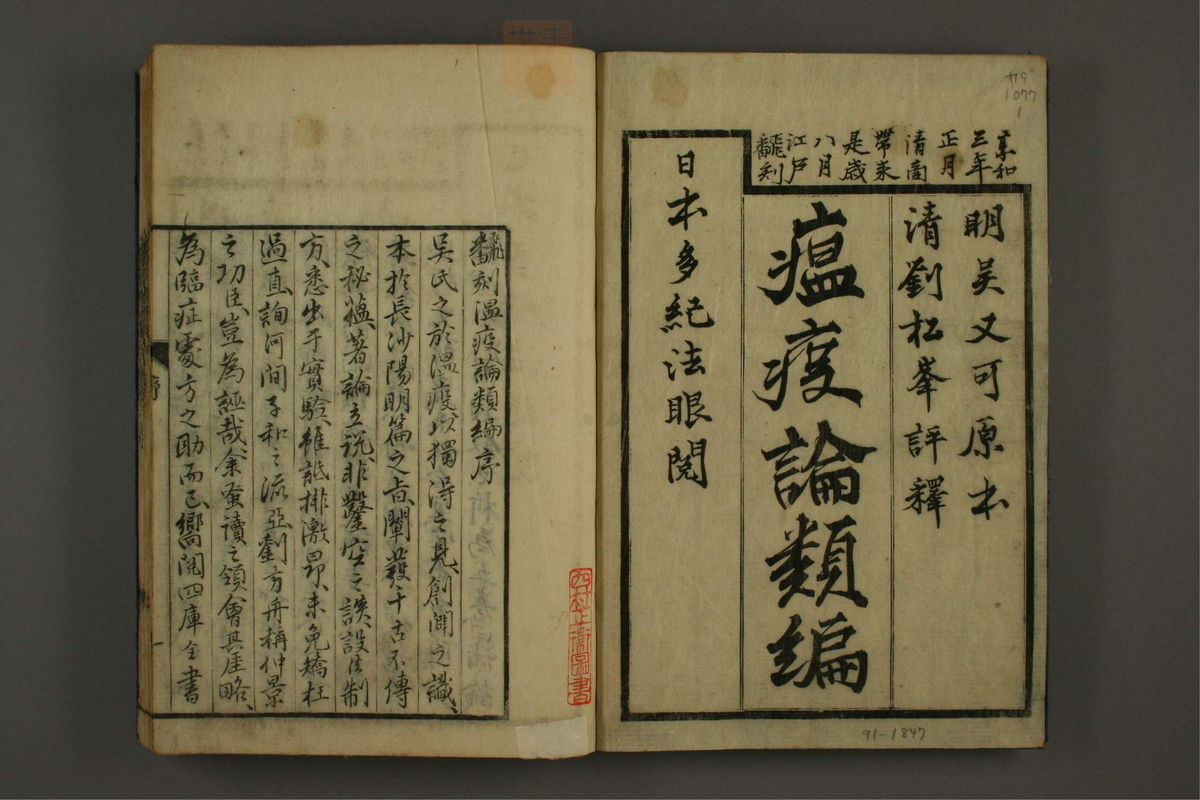 享和
三年
正月
清商
帶來
是歳
八月
江戸
翻刻
明吳又可原本
清劉松峯評釋
瘟疫論類編
日本多紀法眼閲
飜刻温疫論類編序
吳氏之於温疫以獨得之見創闢之識
本於長沙陽明篇之㫖闡發千古不傳
之秘蘊著論立説非鑿空之談設法制
方悉出于實驗雖詆排激昂未免矯枉
過直詢河間子和之流亞劉方舟稱仲景
之功臣豈為誣哉余蚤讀之領會其厓略
為臨症處方之助而已嚮閲四庫全書
序
一
94
1077
1
91-1847